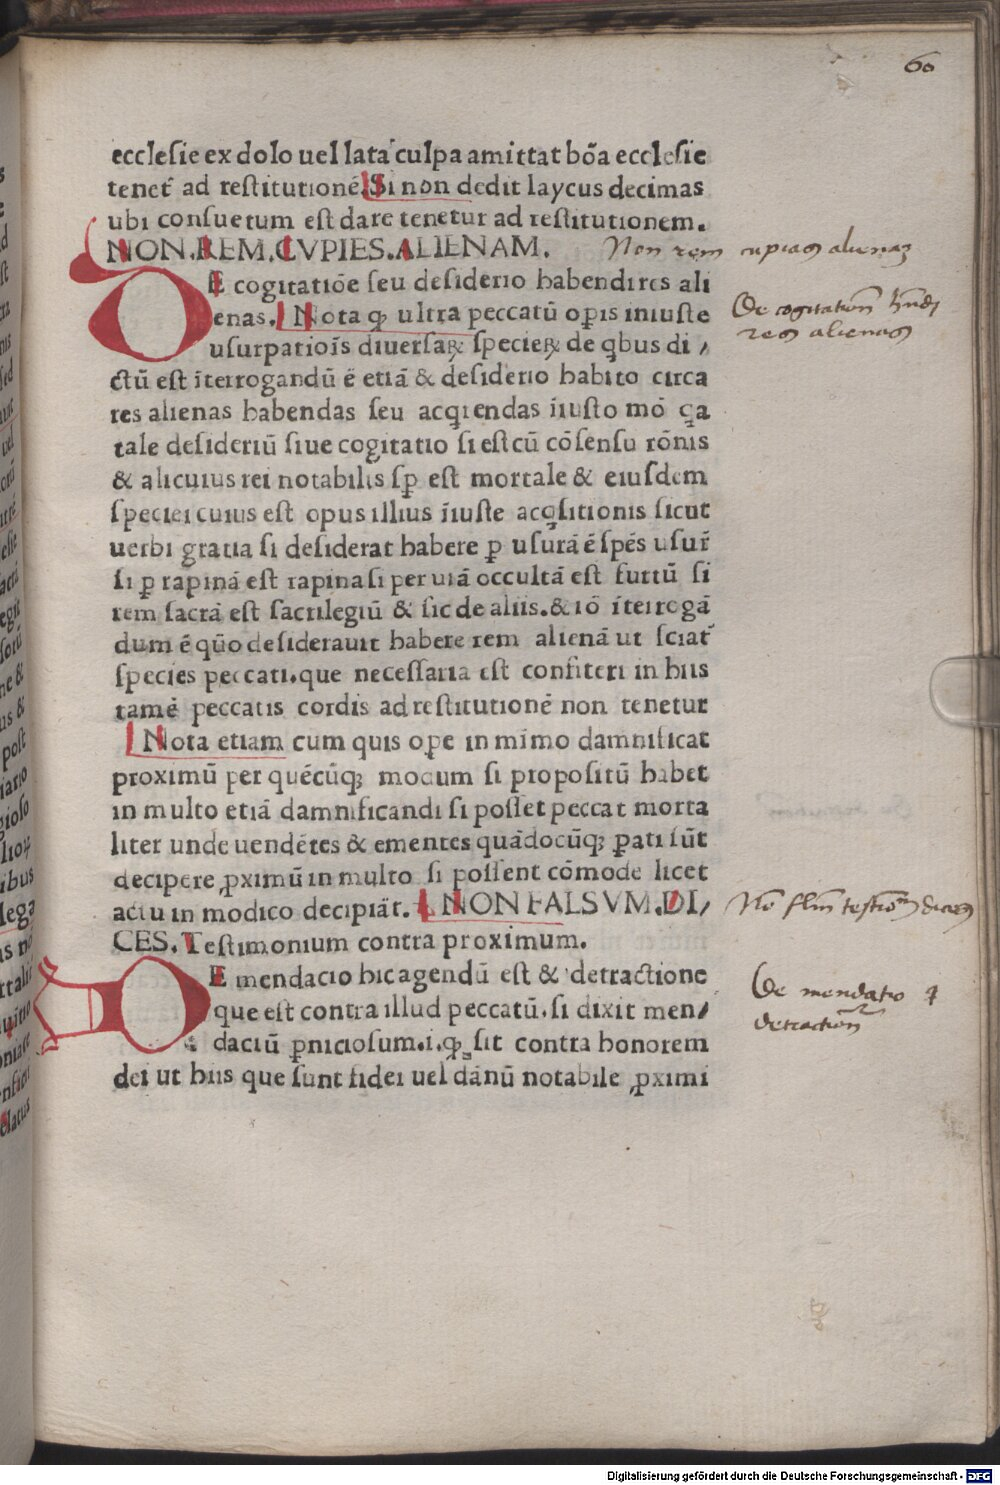 60
ecclesie ex dolo uel lata culpa amittat bōa ecclesie
teneť ad restitutionē. Si non dedit laycus decimas
ubi consuetum est dare tenetur ad restitutionem.
NON.REM.CVPIES.ALIENAM.
Non rem cupias alienaȝ
DE cogitatiōe seu desiderio habendi res ali
enas. Nota ꝙ ultra peccatū oꝑis iniuste
usurpatiōis diuersaꝝ specieꝝ de ꝗbus di/
ctū est īterrogandū ē etiā & desiderio habito circa
res alienas habendas seu acꝗrendas īiusto mō ꝗa
tale desideriū siue cogitatio si est cū cōsensu rōnis
& alicuius rei notabilis sꝑ est mortale & eiusdem
speciei cuius est opus illius īiuste acꝗsitionis sicut
uerbi gratia si desiderat habere ꝑ usurā ē spēs usur̄
si ꝑ rapinā est rapina si per uiā occultā est furtū si
rem sacrā est sacrilegiū & sic de aliis. & iō īterrogā
dum ē quō desiderauit habere rem alienā ut sciat᷑
species peccati. que necessaria est confiteri in hiis
tamē peccatis cordis ad restitutionē non tenetur
Nota etiam cum quis oꝑe in mīmo damnificat
proximū per quēcūqꝫ modum si propositū habet
in multo etiā damnificandi si posset peccat morta
liter unde uendētes & ementes quādocūqꝫ ꝑati sūt
decipere ꝓximū in multo si possent cōmode licet
actu in modico decipiāt. NON FALSVM.DI/
CES. Testimonium contra proximum.
DE mendacio hic agendū est & detractione
que est contra illud peccatū. si dixit men/
daciū ꝑniciosum. i. ꝙ sit contra honorem
dei ut hiis que sunt fidei uel dānū notabile ꝓximi
De cogitatiōn
res alienas
De mendatio
detractiōn
Digitalisierung gefördert durch die Deutsche Forschungsgemeinschaft - DFG